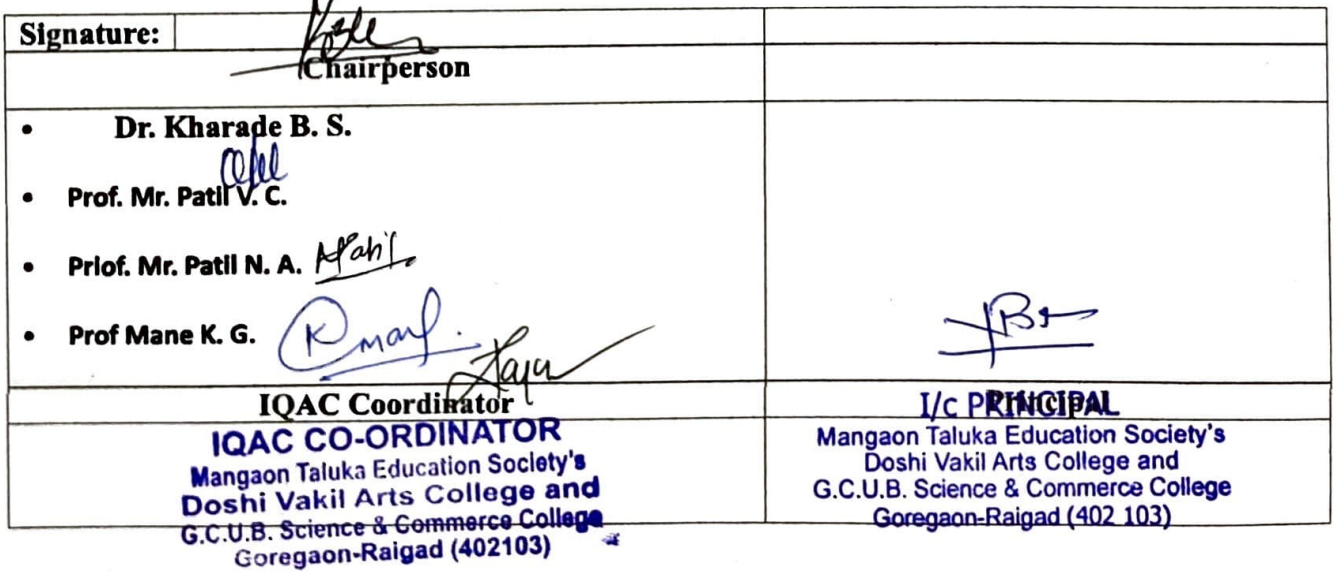 Signature:
Chairperson
• Dr. Kharade B. S.
• Prof. Mr. Patil V. C.
• Priof. Mr. Patil N. A. APatil
• Prof Mane K. G. Kmane.
IQAC Coordinator
IQAC CO-ORDINATOR
Mangaon Taluka Education Society's
Doshi Vakil Arts College and
G.C.U.B. Science & Commerce College
Goregaon-Raigad (402103)
Principal
I/c PRINCIPAL
Mangaon Taluka Education Society's
Doshi Vakil Arts College and
G.C.U.B. Science & Commerce College
Goregaon-Raigad (402 103)